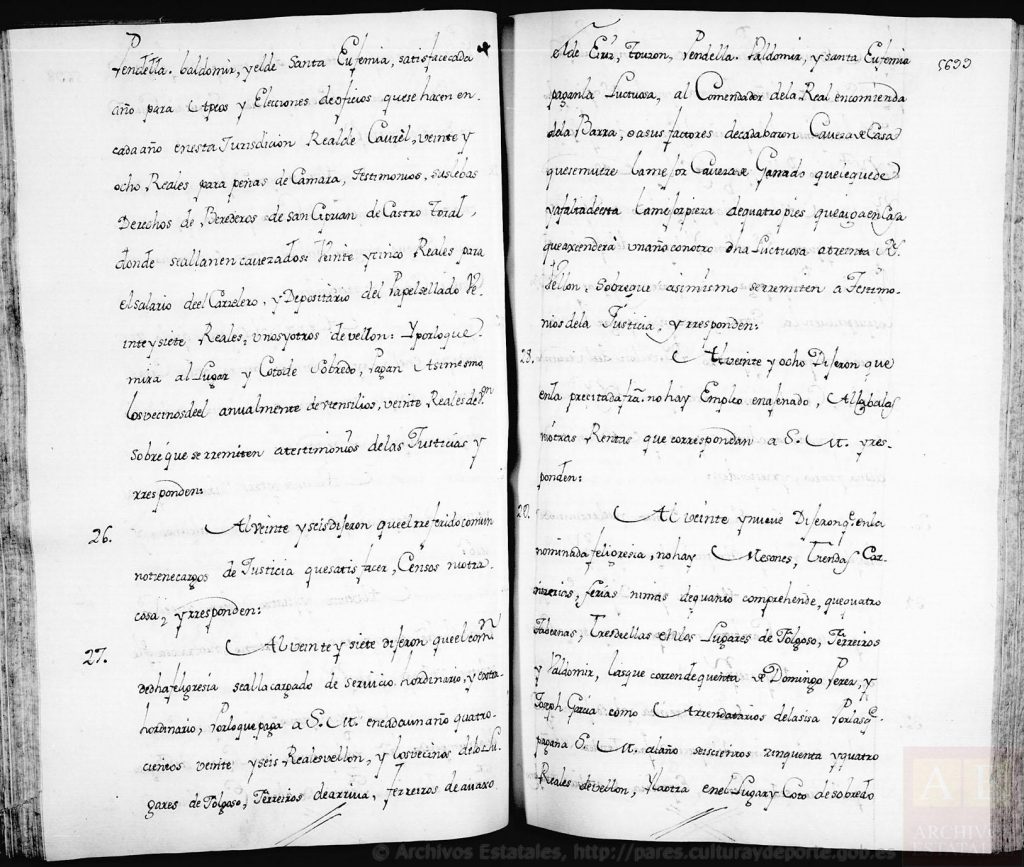 Pendella. baldomir, yelde Santa Eufemia, satisface cada
año para Utpos y Elecciones deoficios quese hacen en
cada año enesta Jurisdicion Realde Caurèl, veinte y
ocho Reales para peñas de Camara, Testimonios, sus
Derechos de, Berederos de san Ciprian de Castro Toral,
donde seallanencavezados: Veinte ycinco Reales para
elsalario deel Carzelero, y Depositario del Papelsellado Ve-
inte ysiete Reales, unosyotros devellon: Yporloque
mira al Lugar y Cotode Sobredo, Pagan Asimesmo
losvecinosdeel anualmente deutensilios, veinte Realesdevon
sobre que se rremiten atestimonios delas Justicias y
rresponden:
26. Alveinte yseisdijeron queel rreferidocomun
notienecargos de Justicia quesatisfacer, Censos niotra
cosa, yrresponden:
27. Alveinte y siete dijeron queel comun
dedhafeligresia seallacargado de servicio hordinario, y extra
hordinario, Porloquepaga a S. M. encadaunaño quatro-
cientos veinte yseis Realesvellon, y losvecinos delos Lu-
gares de Folgoso, Ferreiros dearriva, ferreiros de avaxo
elde Eiriz, Touzon, Pendella. Valdomir, y santa Eufemia
5699
paganla Luctuosa, al Comendador dela Real encomienda
dela Barra, oasus factores decadabaron Caveza de Casa
quesemuere lamejor Caveza de Ganado quelequede
yafaltadeesta lamejorpieza dequatropies queaigaenCasa
queaxcenderà unaño conotro dha Luctuosa atreinta Rs
vellon. Sobreque asimismo serremiten a Testimo-
nios dela Justicia, yrresponden:
28. Alveinte y ocho Dijeron que
enla precitada fra. nohay Empleo enajenado, Alcabalas
niotras Rentas que correspondan a S. M. yres-
ponden:
29. Al veinte ynueve Dijeron qe. enla
nominada feligresia, nohay Mesones, Tiendas Car-
nizerias, ferias nimas dequanto comprehende, quequatro
Tabernas, Tresdellas enlos Lugares de Folgoso, Ferreiros
y Valdomir, lasque correndequenta de Domingo Perez, y
Joseph Garcia como Arrendatarios delasisa Porlasqe.
pagana S. M. alaño seiscientos zinquenta yquatro
Reales devellon, Ylaotra enel Lugary Coto desobredo
ARCHIVOS
ESTATALES
© Archivos Estatales, http://pares.culturaydeporte.gob.es